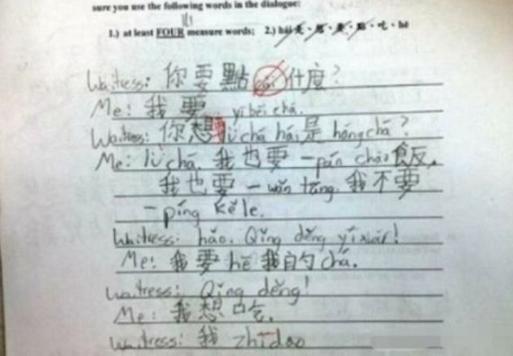 sure you use the following words in the dialogue:
1.) at least FOUR measure words; 2.) hái 是、想、要、點、吃、hē
Waitress: 你要點 什麼?
Me: 我要 yì bēi chá.
Waitress: 你想要lǜ chá hái 是 hóng chá?
Me: lǜ chá. 我也要一pán chǎo 飯.
我也要一wǎn tāng. 我不要
一píng kělè.
Waitress: hǎo. Qǐng děng yíxiàr!
Me: 我要 hē 我的 chá.
Waitress: Qǐng děng!
Me: 我想吃.
Waitress: 我 zhīdao